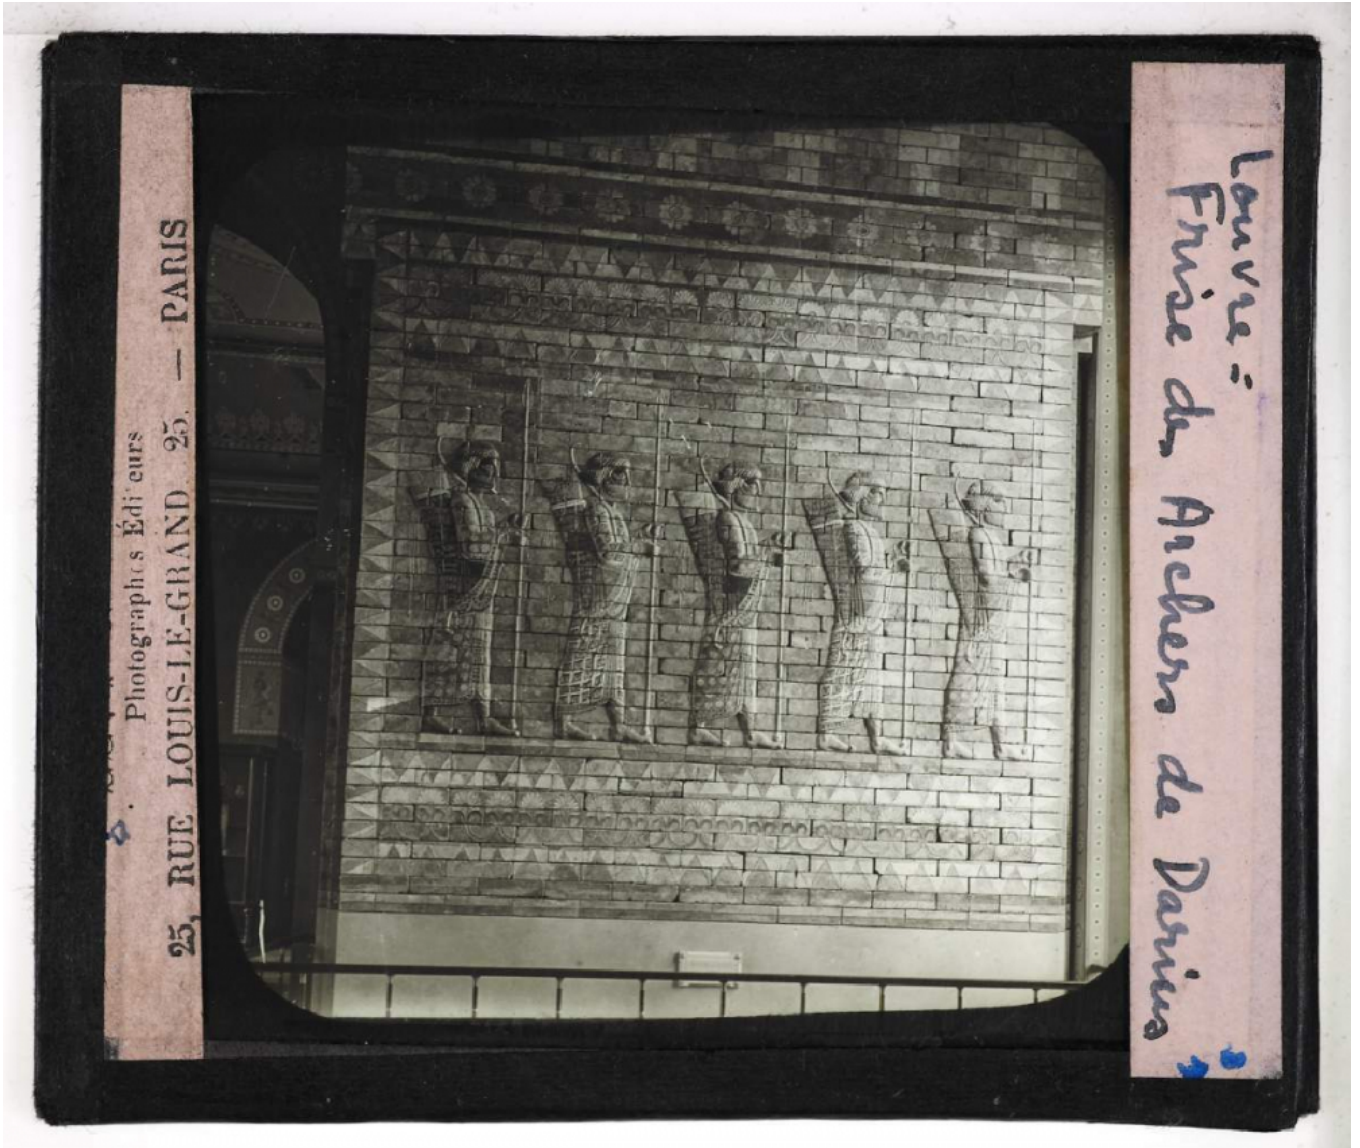 Photographes Éditeurs
25, RUE LOUIS-LE-GRAND, 25. — PARIS
Louvre =
Frise des Archers de Darius